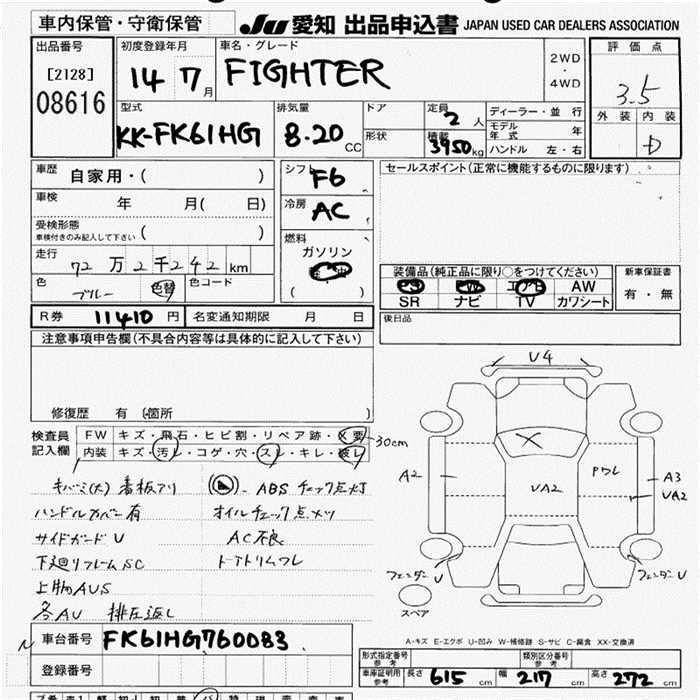 車内保管・守衛保管
JU 愛知 出品申込書 JAPAN USED CAR DEALERS ASSOCIATION
出品番号
[2128]
08616
初度登録年月
14 7月
車名・グレード
FIGHTER
2WD
・
4WD
評価点
3.5
外装 内装
D
型式
KK-FK61HG
排気量
8.20 CC
ドア
形状
定員
2人
積載
3950kg
ディーラー・並行
モデル年式 年
ハンドル 左・右
車歴
自家用・( )
車検 年 月( 日)
受検形態
車検付きのみ記入して下さい ( )
走行
72万2千242km
色
ブルー
色替
色コード
シフト
F6
冷房
AC
燃料
ガソリン
( )
セールスポイント(正常に機能するものに限ります)
装備品(純正品に限り○をつけてください)
PS PW エアB AW
SR ナビ TV カワシート
新車保証書
有・無
R券 11410円 名変通知期限 月 日
後日品
注意事項申告欄(不具合内容等は具体的に記入して下さい)
修復歴 有 (箇所 )
検査員
記入欄
FW キズ・飛石・ヒビ割・リペア跡・X要
30cm
内装 キズ・汚レ・コゲ・穴・スレ・キレ・破レ
キバミ(大) 看板アリ
ABSチェック点灯
ハンドルカバー有
オイルチェック点メツ
サイドガードU
AC不良
下廻リフレームSC
AUS
各AU 排圧返し
U4
A2
UA2
Pワレ
A3
UA2
フェンダーU
フェンダーU
スペア
A-キズ E-エクボ U-凹み W-補修跡 S-サビ C-腐食 XX-交換済
車台番号 FK61HG760083
登録番号
形式指定番号
参考
類別区分番号
参考
車庫証明用
参考
長さ 615 cm 幅 217 cm 高さ 272 cm